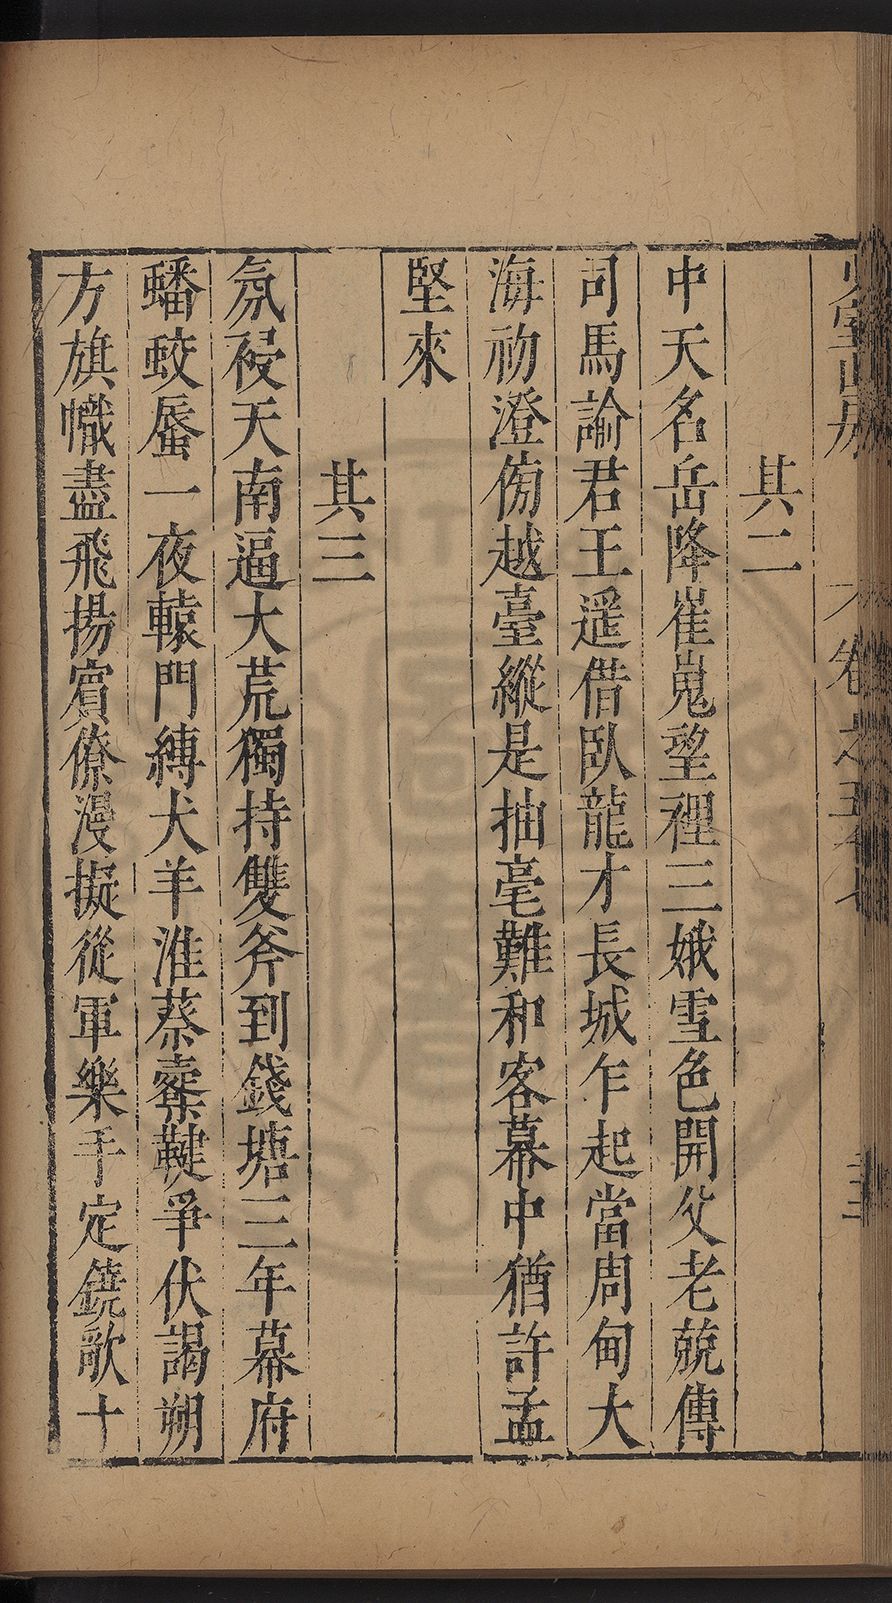 卷之五
其二
中天名岳降崔嵬望裡三娥雪色開父老兢傳
司馬諭君王遥借臥龍才長城乍起當周甸大
海初澄傍越臺縱是抽毫難和客幕中猶許孟
堅來
其三
氛祲天南逼大荒獨持雙斧到錢塘三年幕府
蟠蛟蜃一夜轅門縛犬羊淮蔡櫜鞬爭伏謁朔
方旗幟盡飛揚賓僚漫擬從軍樂手定鐃歌十